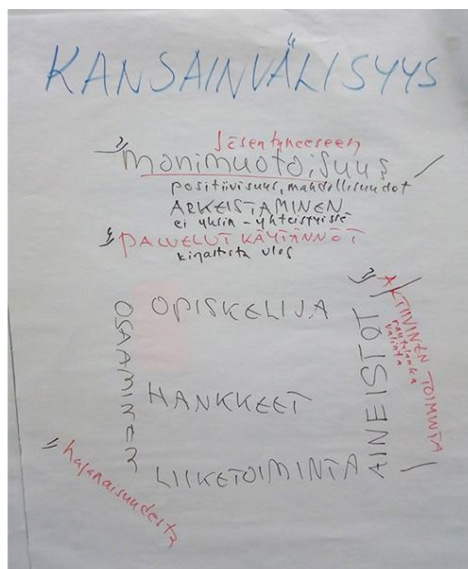 KANSAINVÄLISYYS
Jäsentyneeseen
monimuotoisuus
positiivisuus, mahdollisuudet
ARKEISTAMINEN
ei yksin - yhteistyössä
PALVELUT KÄYTÄNNÖT
kirjastosta ulos
OPISKELIJA
HANKKEET
LIIKETOIMINTA
OSAAMINEN
AINEISTOT
AKTIIVINEN TOIMINTA
rautalanka
valinta
hajanaisuudesta